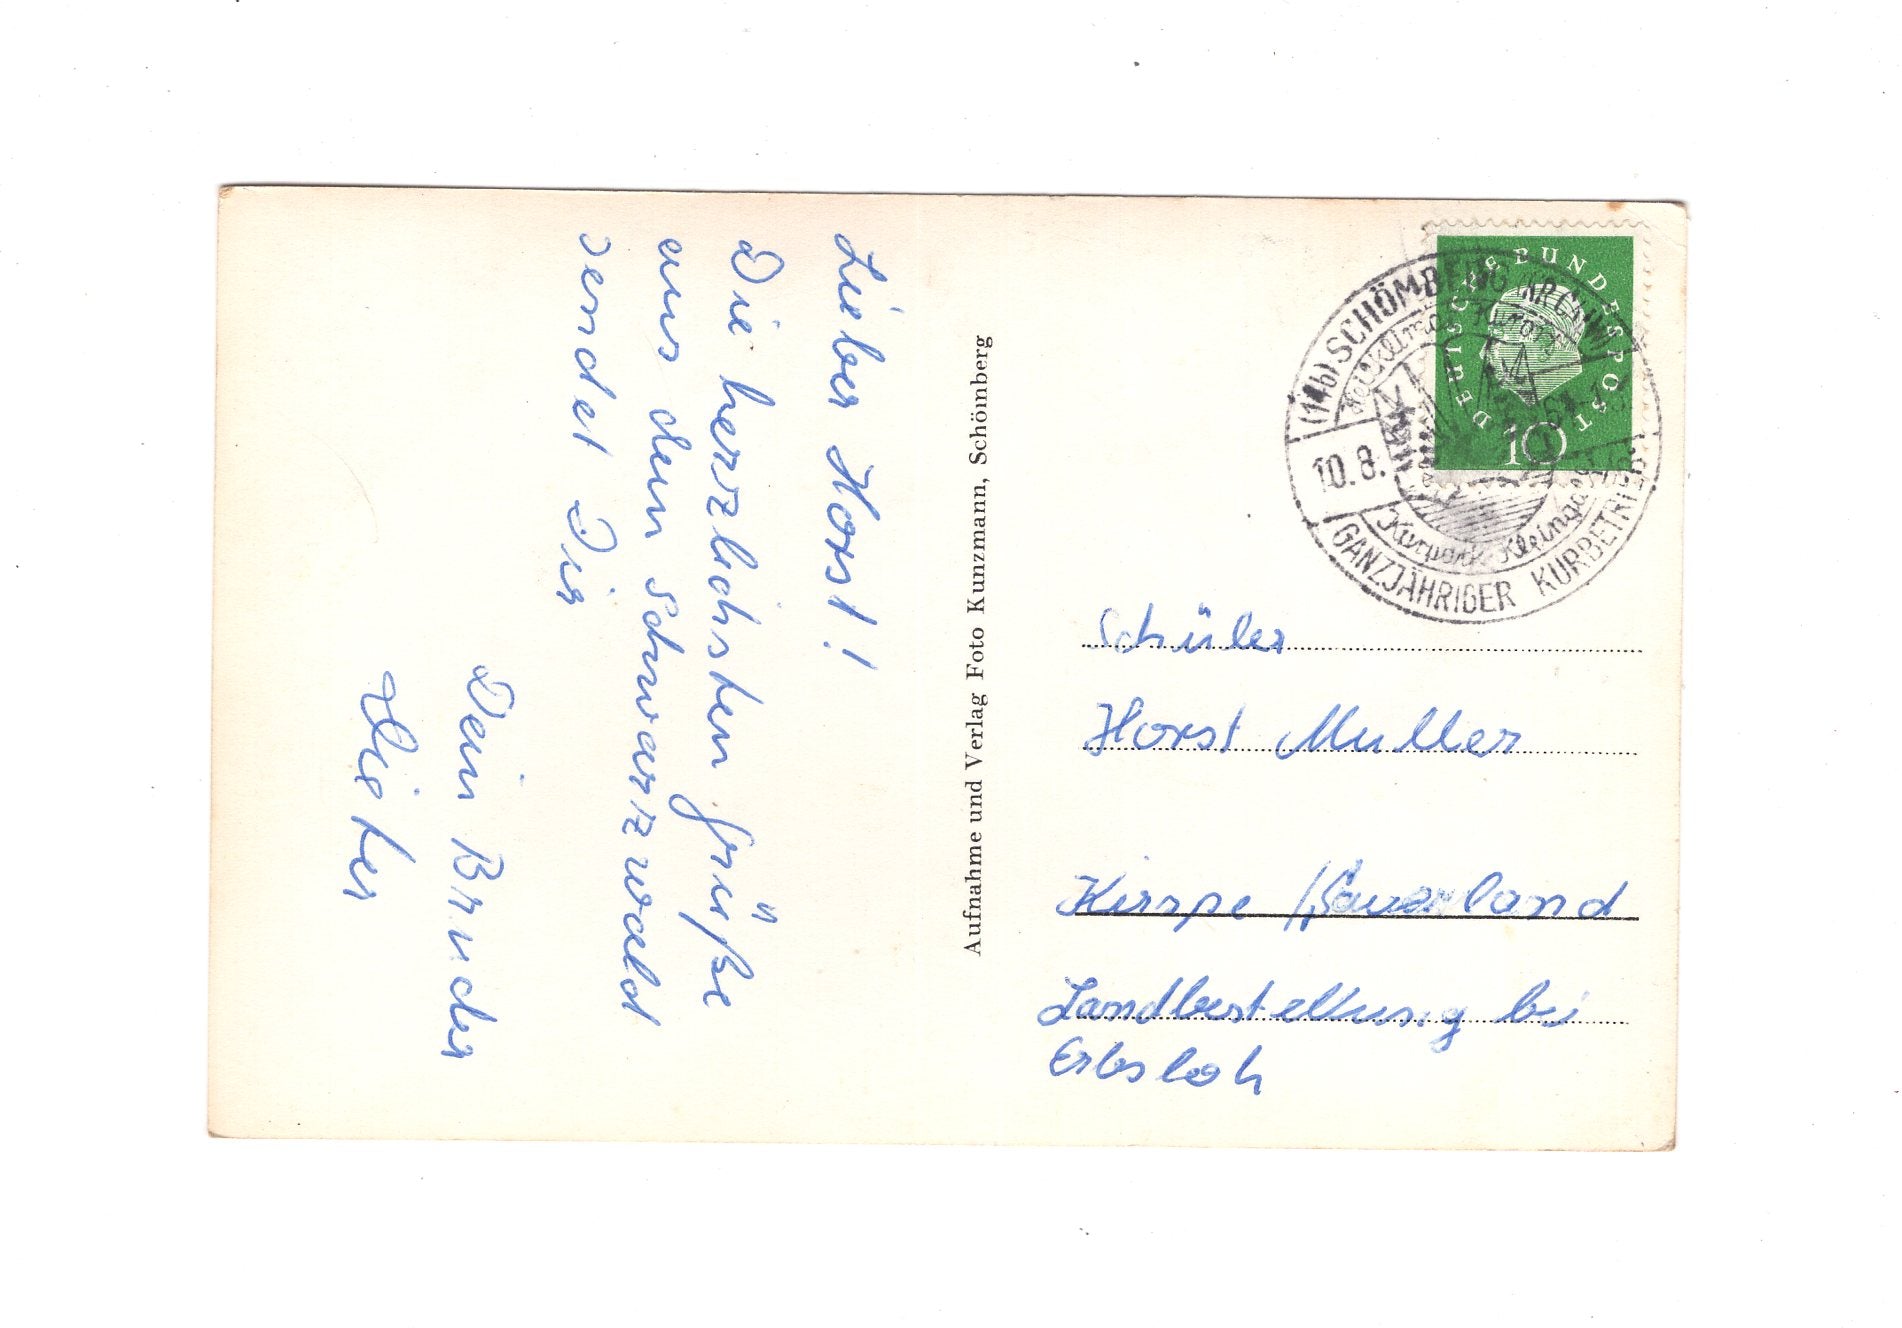 Lieber Horst!
Die herzlichsten Grüße
aus dem Schwarzwald
sendet Dir
Dein Bruder
Dieter
Aufnahme und Verlag Foto Kunzmann, Schömberg
DEUTSCHE BUNDESPOST
10
(14b) SCHÖMBERG
10.8.
Kurpark
GANZJÄHRIGER KURBETRIEB
Schüler
Horst Muller
Kierspe /Sauerland
Landbestellung bei
Erbsloh